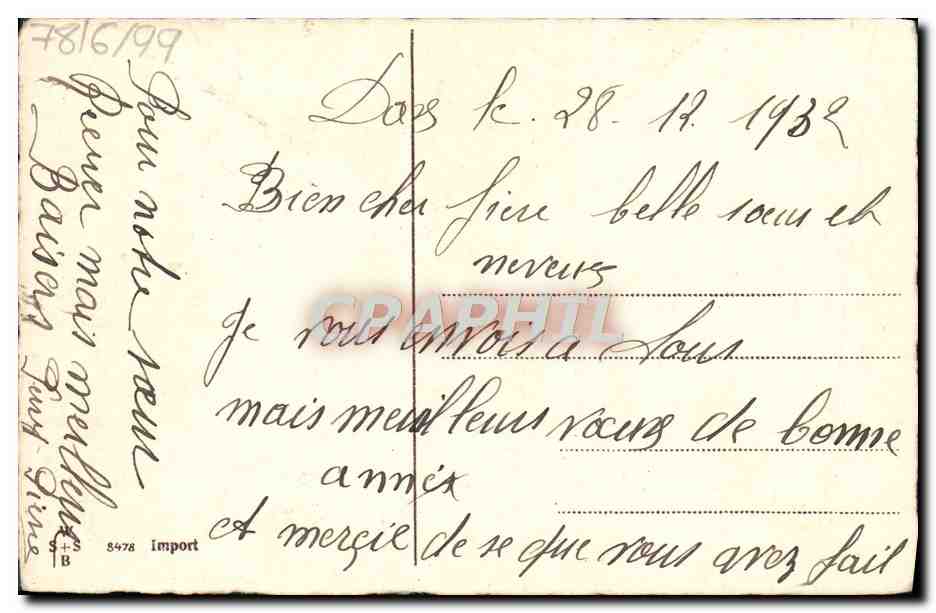 78/6/99
Dax le. 28 - 12. 1932
Bien cher frere belle soeur et
neveux
Je vous envois a tous
mais meuilleurs voeux de bonne
année
et merçie de se que vous avez fait
Pour notre soeur
Recever mais meilleurs
Baisers
CPAPHIL
S+S
B
8478 Import